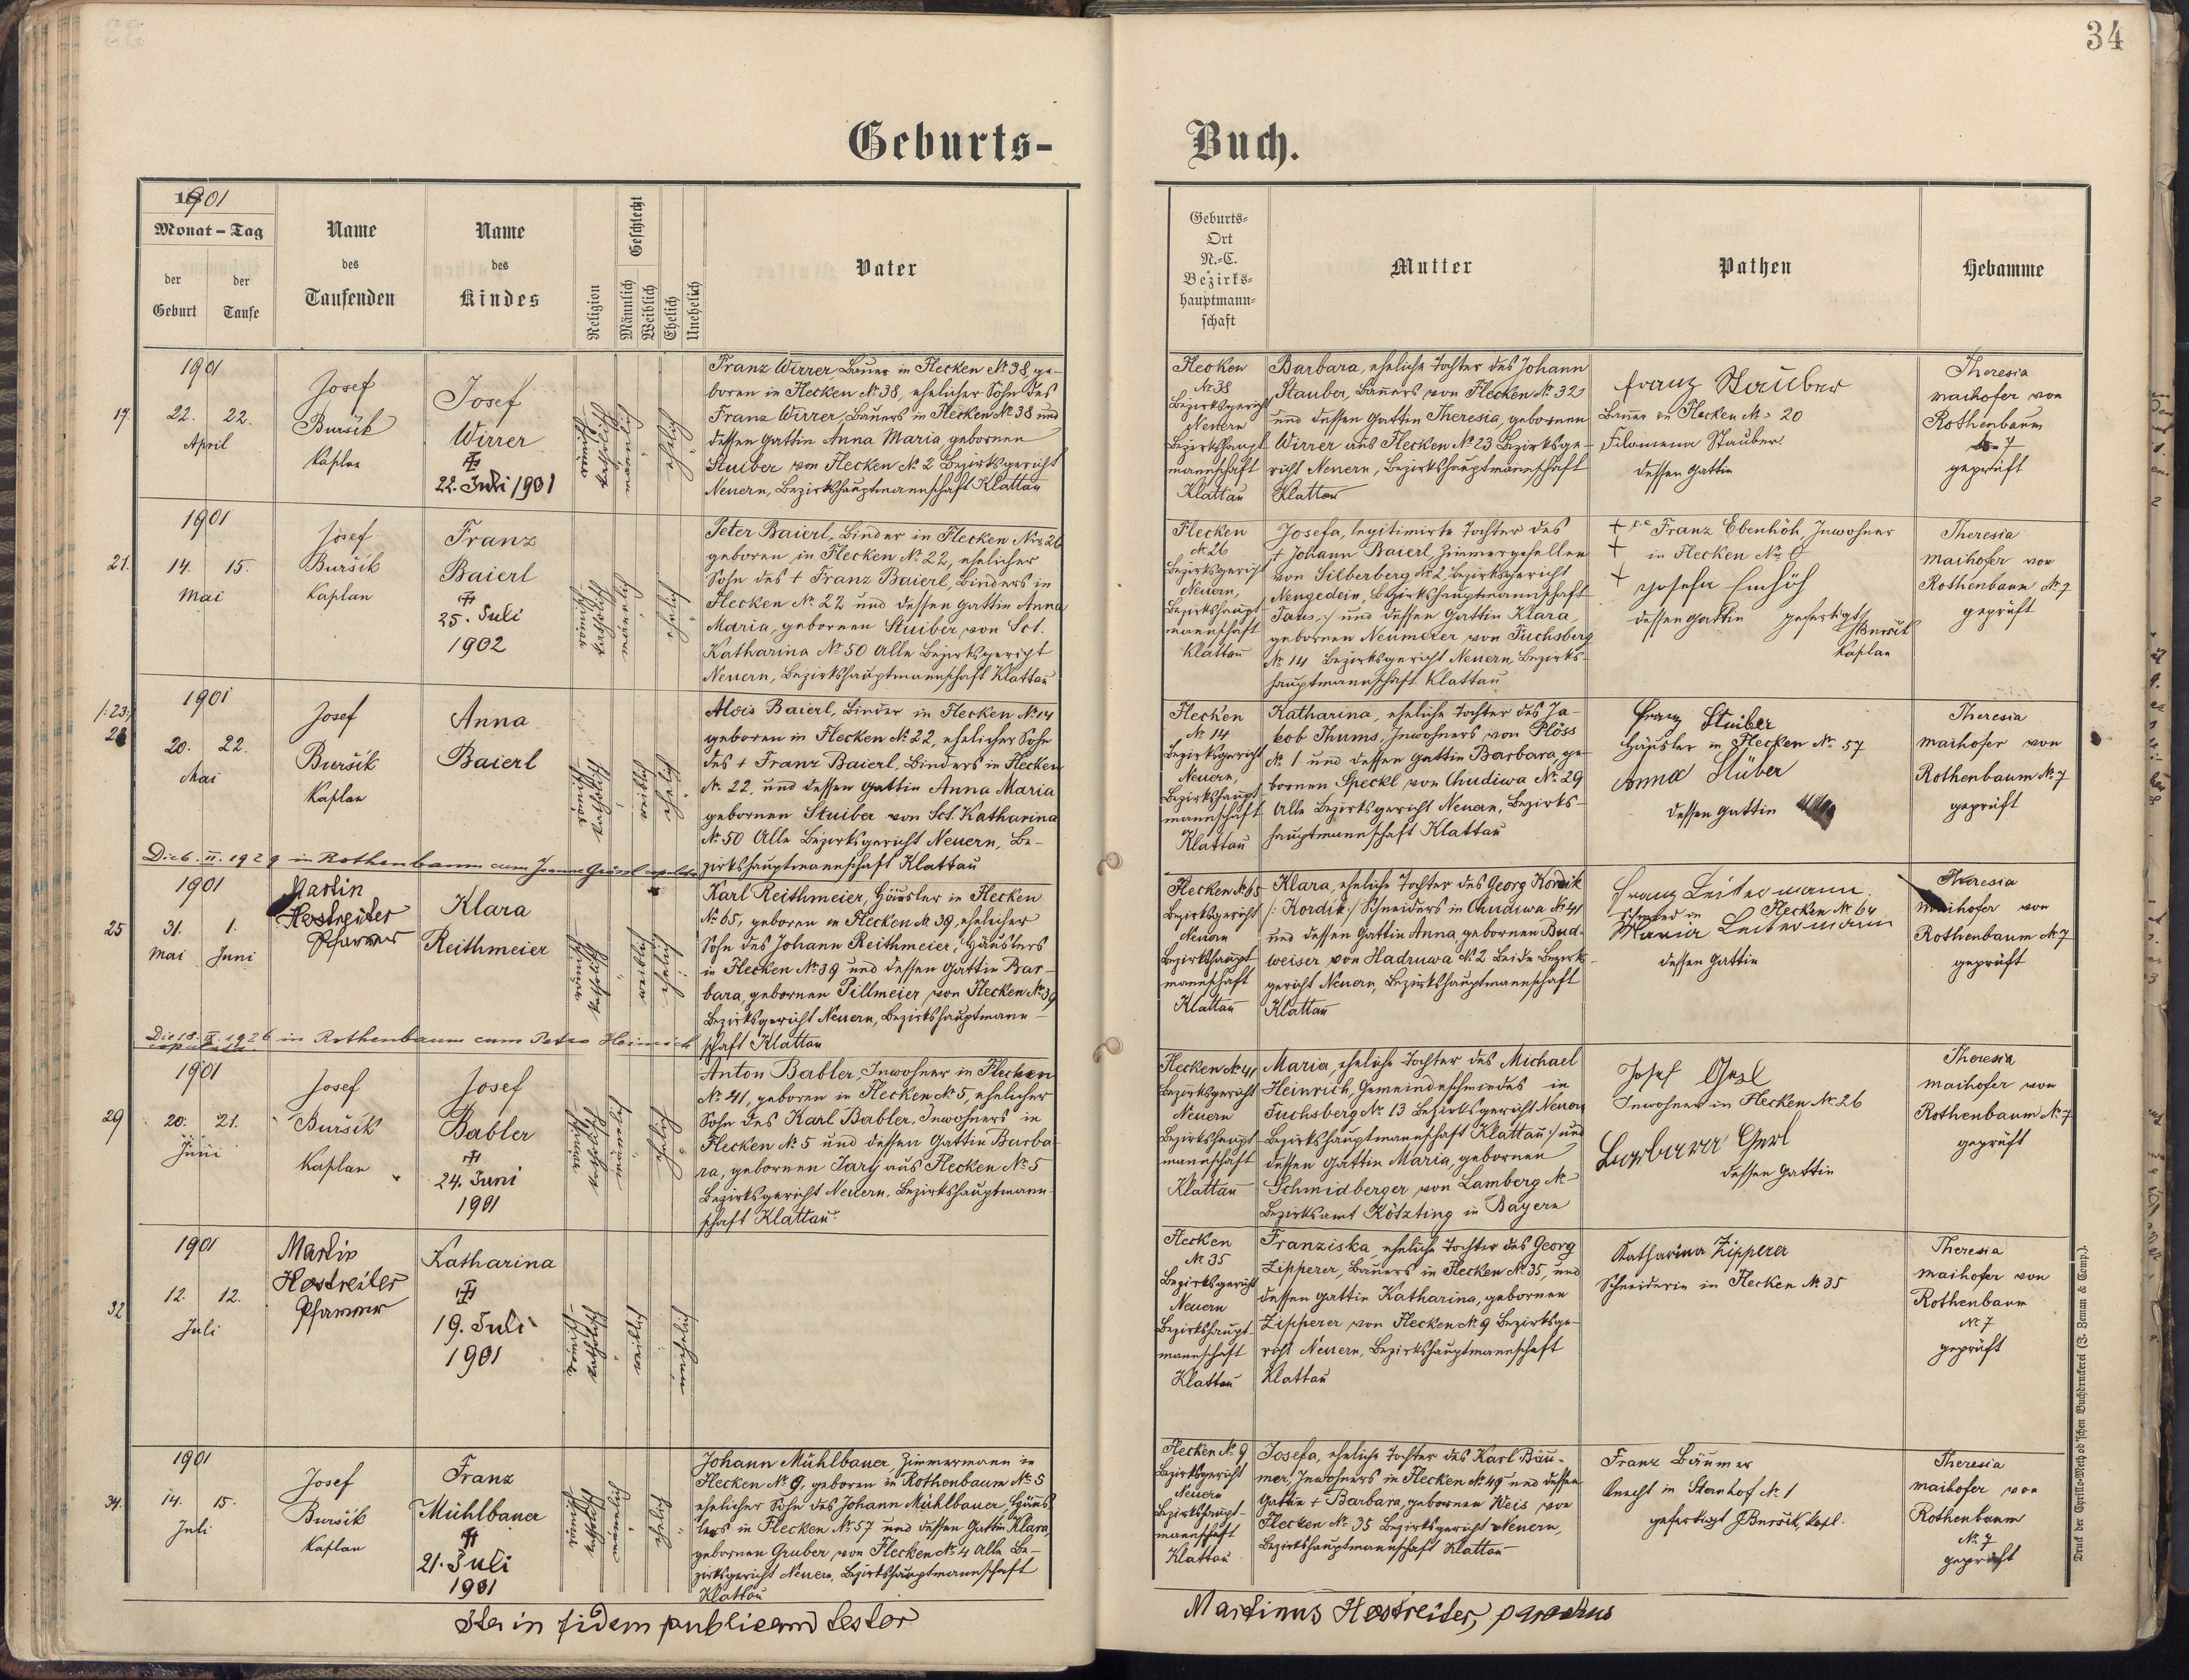 34
Geburts-
Buch.
1901
Monat - Tag
der Geburt
der Taufe
Name des Taufenden
Name des Kindes
Religion
Geschlecht
Männlich
Weiblich
Ehelich
Unehelich
Vater
Geburts-
Ort
N.-C.
Bezirks-
hauptmann-
schaft
Mutter
Pathen
Hebamme
19.
1901
22. 22.
April
Josef
Buršik
Kaplan
Josef
Wirrer
22. Juli 1901
Römisch
katholisch
männlich
ehelich
Franz Wirrer Bauer in Flecken № 38, ge-
boren in Flecken № 38, ehelicher Sohn des
Franz Wirrer, Bauers in Flecken № 38 und
dessen Gattin Anna Maria gebornen
Stuiber von Flecken № 2 Bezirksgericht
Neuern, Bezirkshauptmannschaft Klattau
Flecken
№ 38
Bezirksgericht
Neuern
Bezirkshaupt-
mannschaft
Klattau
Barbara, eheliche Tochter des Johann
Stauber, Bauers von Flecken № 32
und dessen Gattin Theresia, gebornen
Wirrer aus Flecken № 23 Bezirksge-
richt Neuern, Bezirkshauptmannschaft
Klattau
Franz Stauber
Bauer in Flecken № 20
Filomena Stauber
dessen Gattin
Theresia
Maihofer von
Rothenbaum
7
geprüft
21.
1901
14. 15.
Mai
Josef
Buršik
Kaplan
Franz
Baierl
25. Juli
1902
Römisch
katholisch
männlich
ehelich
Peter Baierl, Binder in Flecken Nro 26
geboren in Flecken № 22, ehelicher
Sohn des † Franz Baierl, Binders in
Flecken № 22 und dessen Gattin Anna
Maria, gebornen Stuiber von Sct.
Katharina № 50 Alle Bezirksgericht
Neuern, Bezirkshauptmannschaft Klattau
Flecken
№ 26
Bezirksgericht
Neuern,
Bezirkshaupt-
mannschaft
Klattau
Josefa, legitimirte Tochter des
† Johann Baierl, Zimmergesellen
von Silberberg № 2, Bezirksgericht
Neugedein, Bezirkshauptmannschaft
Taus, :/ und dessen Gattin Klara,
gebornen Neumeier von Fuchsberg
№ 14 Bezirksgericht Neuern, Bezirks-
hauptmannschaft Klattau
+ Franz Ebenhöh, Inwohner
+ in Flecken Nro 6
+ Josefa
dessen Gattin gefertigt
JBuršik
Kaplan
Theresia
Maihofer von
Rothenbaum № 7
geprüft
/:23:/
1901
20. 22.
Mai
Josef
Buršik
Kaplan
Anna
Baierl
Römisch
katholisch
weiblich
ehelich
Alois Baierl, Binder in Flecken № 14
geboren in Flecken № 22, ehelicher Sohn
des † Franz Baierl, Binders in Flecken
№ 22, und dessen Gattin Anna Maria
gebornen Stuiber von Sct. Katharina
№ 50 Alle Bezirksgericht Neuern, Be-
zirkshauptmannschaft Klattau
Die 6. II. 1929 in Rothenbaum cum Joanne
Flecken
№ 14
Bezirksgericht
Neuern,
Bezirkshaupt-
mannschaft
Klattau
Katharina, eheliche Tochter des Ja-
kob Thums, Inwohners von Plöss
№ 1 und dessen Gattin Barbara, ge-
bornen Speckl von Chudiwa № 29
Alle Bezirksgericht Neuern, Bezirks-
hauptmannschaft Klattau
Franz Stuiber
Häusler in Flecken № 57
Anna Stüber
dessen Gattin
Theresia
Maihofer von
Rothenbaum № 7
geprüft
25
1901
31. 1.
Mai Juni
Martin
Hostreiter
Pfarrer
Klara
Reithmeier
Römisch
katholisch
weiblich
ehelich
Karl Reithmeier, Häusler in Flecken
№ 65, geboren in Flecken № 39, ehelicher
Sohn des Johann Reithmeier, Häuslers
in Flecken № 39 und dessen Gattin Bar-
bara, gebornen Pillmeier von Flecken № 39
Bezirksgericht Neuern, Bezirkshauptmann-
schaft Klattau
Die 18. IX. 1926 in Rothenbaum cum Petro Heinrich
copulata.
Flecken № 65
Bezirksgericht
Neuern
Bezirkshaupt-
mannschaft
Klattau
Klara, eheliche Tochter des Georg Kordik
/: Kordik :/ Schneiders in Chudiwa № 41
und dessen Gattin Anna, gebornen Bud-
weiser von Hadruwa № 2 Beide Bezirks-
gericht Neuern, Bezirkshauptmannschaft
Klattau
Franz Leitermann
Schmied in Flecken № 64
Maria Leitermann
dessen Gattin
Theresia
Maihofer von
Rothenbaum № 7
geprüft
29
1901
20. 21.
Juni
Josef
Buršik
Kaplan
Josef
Babler
24. Juni
1901
Römisch
katholisch
männlich
ehelich
Anton Babler, Inwohner in Flecken
№ 41, geboren in Flecken № 5, ehelicher
Sohn des Karl Babler, Inwohners in
Flecken № 5 und dessen Gattin Barba-
ra, gebornen Jary aus Flecken № 5
Bezirksgericht Neuern, Bezirkshauptmann-
schaft Klattau
Flecken № 41
Bezirksgericht
Neuern
Bezirkshaupt-
mannschaft
Klattau
Maria, eheliche Tochter des Michael
Heinrich, Gemeindeschmiedes in
Fuchsberg № 13 Bezirksgericht Neuern
Bezirkshauptmannschaft Klattau :/ und
dessen Gattin Maria, gebornen
Schmidberger von Lamberg №
Bezirksamt Kötzting in Bayern
Josef Gerl
Inwohner in Flecken № 26
Barbara Gerl
dessen Gattin
Theresia
Maihofer von
Rothenbaum № 7
geprüft
32
1901
12. 12.
Juli
Martin
Hostreiter
Pfarrer
Katharina
19. Juli
1901
Römisch
katholisch
weiblich
unehelich
Flecken
№ 35
Bezirksgericht
Neuern
Bezirkshaupt-
mannschaft
Klattau
Franziska, eheliche Tochter des Georg
Zipperer, Bauers in Flecken № 35, und
dessen Gattin Katharina, gebornen
Zipperer von Flecken № 9 Bezirksge-
richt Neuern, Bezirkshauptmannschaft
Klattau
Katharina Zipperer
Schneiderin in Flecken № 35
Theresia
Maihofer von
Rothenbaum
№ 7
geprüft
34.
1901
14. 15.
Juli
Josef
Buršik
Kaplan
Franz
Mühlbauer
21. Juli
1901
Römisch
katholisch
männlich
ehelich
Johann Mühlbauer, Zimmermann in
Flecken № 9, geboren in Rothenbaum № 5
ehelicher Sohn des Johann Mühlbauer, Häus-
lers in Flecken № 57 und dessen Gattin Klara
gebornen Gruber von Flecken № 4 Alle Be-
zirksgericht Neuern, Bezirkshauptmannschaft
Klattau
Flecken № 9
Bezirksgericht
Neuern
Bezirkshaupt-
mannschaft
Klattau
Josefa, eheliche Tochter des Karl Bäu-
mer, Inwohners in Flecken № 49 und dessen
Gattin † Barbara, gebornen Weis von
Flecken № 35 Bezirksgericht Neuern,
Bezirkshauptmannschaft Klattau
Franz Bäumer
Knecht in Sternhof № 1
gefertigt JBuršik, Kapl.
Theresia
Maihofer von
Rothenbaum
№ 7
geprüft
Ita in fidem publicam testor
Martinus Hostreiter, parochus
Druck der Cyrillo-Method'schen Buchdruckerei (J. Zeman & Comp.).